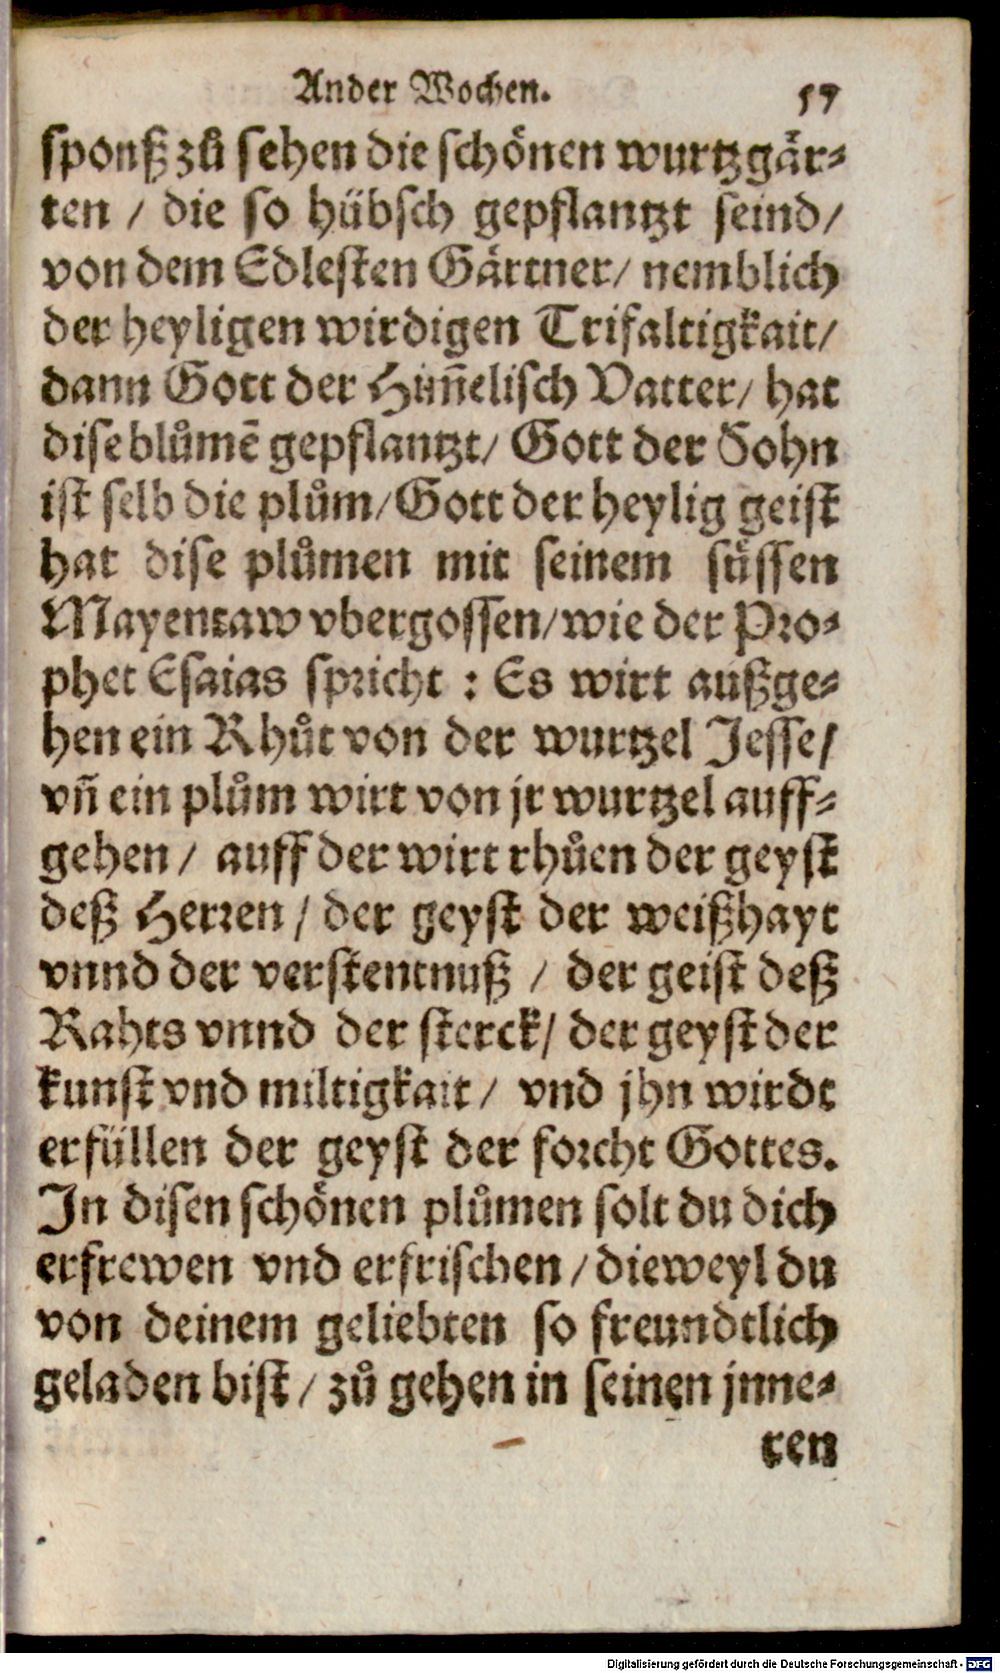 Ander Wochen. 57
sponß zů sehen die schönen wurtzgär⸗
ten / die so hübsch gepflantzt seind/
von dem Edlesten Gärtner/ nemblich
der heyligen wirdigen Trifaltigkait/
dann Gott der Him̃elisch Vatter/ hat
dise blůmẽ gepflantzt/ Gott der Sohn
ist selb die plům/Gott der heylig geist
hat dise plůmen mit seinem süssen
Mayentaw vbergossen/wie der Pro⸗
phet Esaias spricht : Es wirt außge⸗
hen ein Rhůt von der wurtzel Jesse/
vñ ein plům wirt von jr wurtzel auff⸗
gehen / auff der wirt rhůen der geyst
deß Herren / der geyst der weißhayt
vnnd der verstentnuß / der geist deß
Rahts vnnd der sterck/ der geyst der
kunst vnd miltigkait / vnd jhn wirdt
erfüllen der geyst der forcht Gottes.
In disen schönen plůmen solt du dich
erfrewen vnd erfrischen / dieweyl du
von deinem geliebten so freundtlich
geladen bist / zů gehen in seinen jnne⸗
ren
Digitalisierung gefördert durch die Deutsche Forschungsgemeinschaft - DFG